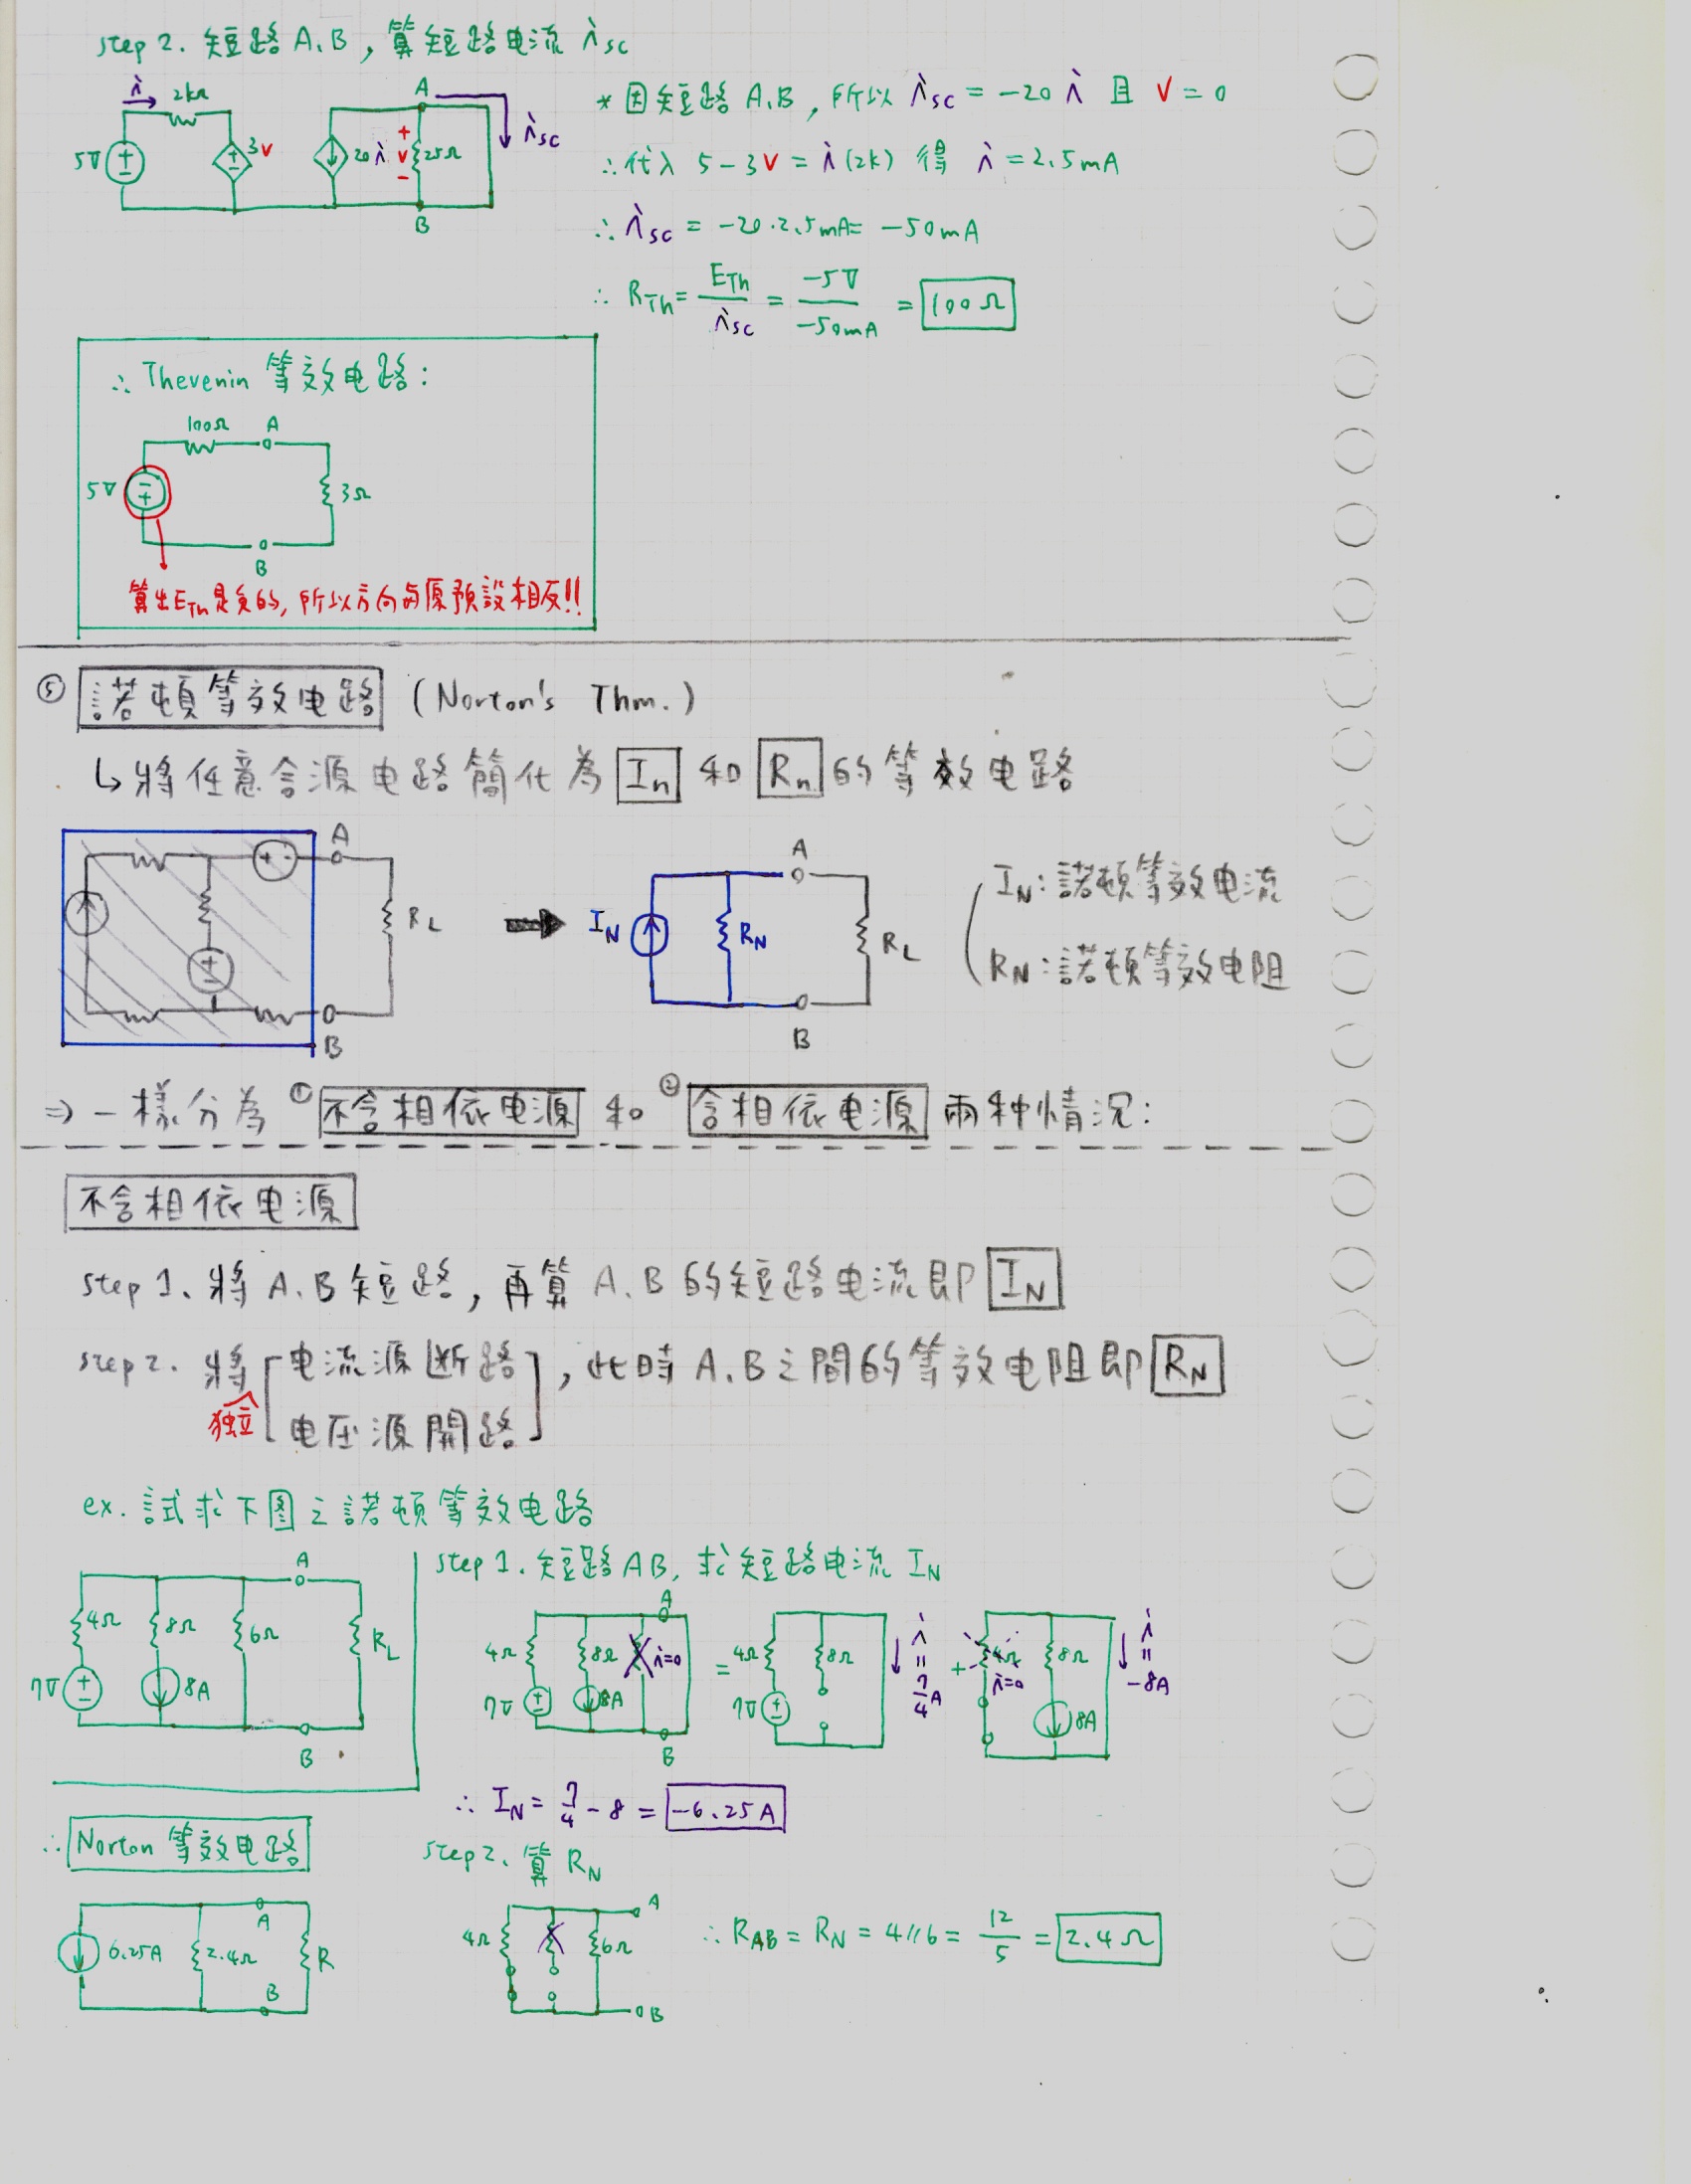 step 2. 短路 A.B , 算短路电流 isc
i
2kΩ
5V
3V
20i
+
V
-
25Ω
A
B
isc
* 因短路 A.B , 所以 isc = -20 i 且 V = 0
∴代入 5 - 3V = i(2k) 得 i = 2.5mA
∴ isc = -20·2.5mA = -50mA
∴ RTh = ETh / isc = -5V / -50mA = 100Ω
∴ Thevenin 等效电路:
100Ω A
5V
3Ω
B
算出ETh是負的, 所以方向與原預設相反!!
⑤ 諾頓等效电路 (Norton's Thm.)
↳ 將任意含源电路簡化為 In 和 Rn 的等效电路
A
RL
B
IN
RN
A
RL
B
IN: 諾頓等效电流
RN: 諾頓等效电阻
⇒ 一樣分為 ① 不含相依电源 和 ② 含相依电源 兩种情况:
不含相依电源
step 1. 將 A.B 短路, 再算 A.B 的短路电流即 IN
step 2. 將 [电流源断路] , 此時 A.B 之間的等效电阻即 RN
独立 [电压源開路]
ex. 試求下图之諾頓等效电路
A
4Ω 8Ω 6Ω RL
7V 8A
B
step 1. 短路 AB, 求短路电流 IN
A
4Ω 8Ω i=0
7V 8A
B
= 4Ω 8Ω
7V
i = 7/4 A
+ 4Ω 8Ω
i=0
8A
i = -8A
∴ IN = 7/4 - 8 = -6.25A
∴ Norton 等效电路
A
6.25A 2.4Ω R
B
step 2. 算 RN
A
4Ω 6Ω
B
∴ RAB = RN = 4//6 = 12/5 = 2.4Ω